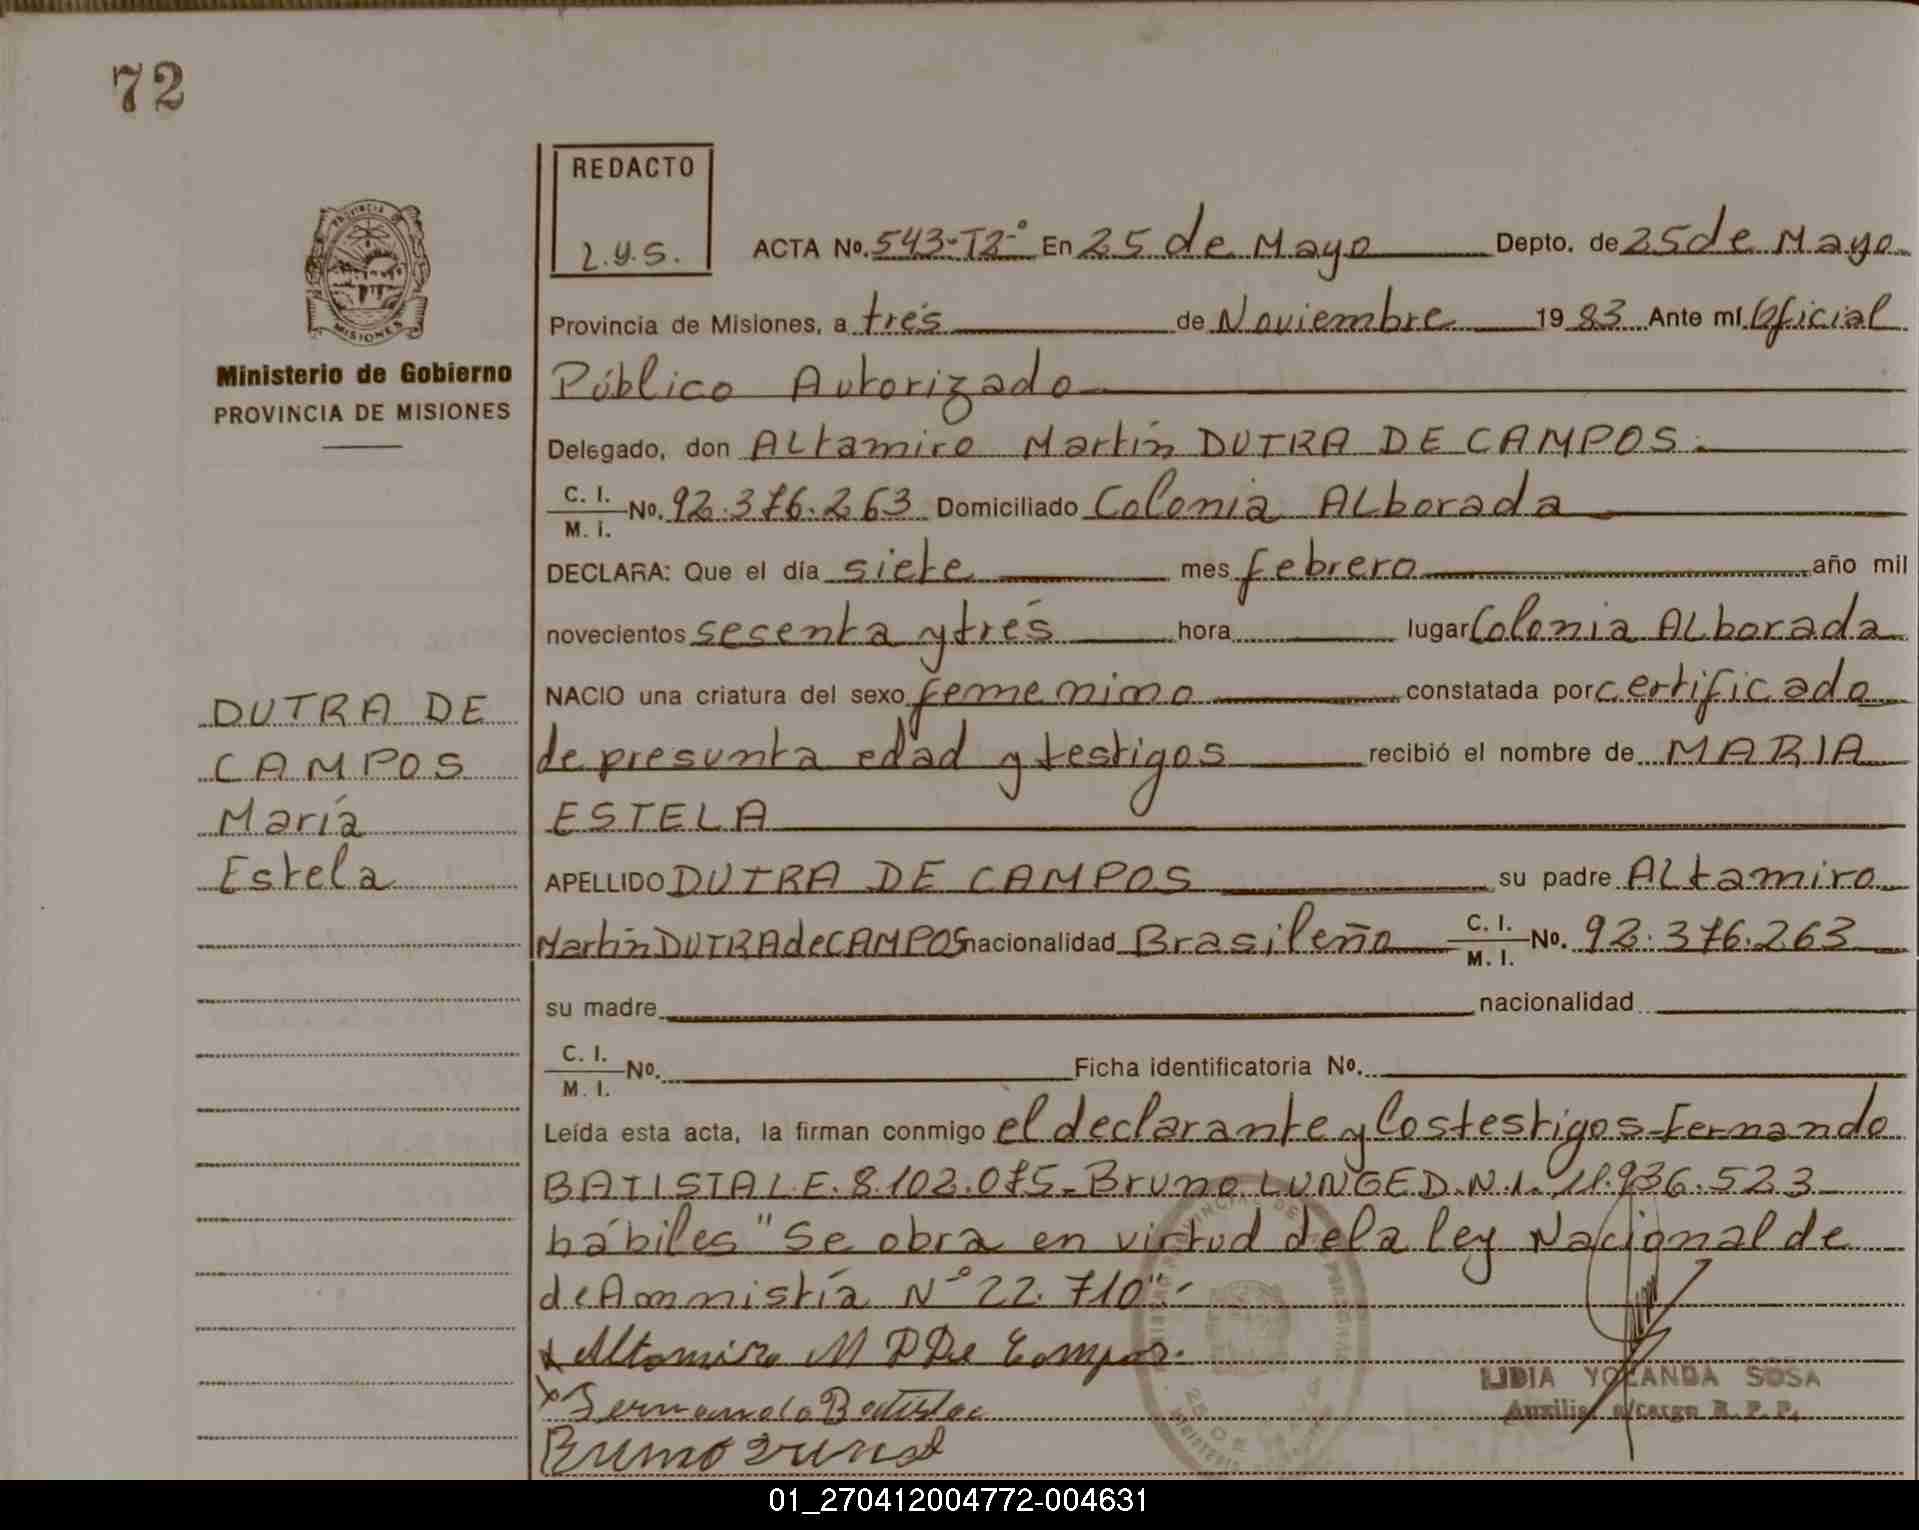 72
REDACTO
L.Y.S.
ACTA No. 543-T2-° En 25 de Mayo Depto. de 25 de Mayo
Provincia de Misiones, a trés de Noviembre 1983 Ante mí Oficial
Público Autorizado
Delegado, don ALtamiro Martín DUTRA DE CAMPOS.
C. I.
M. I. No. 92.376.263 Domiciliado Colonia ALborada
DECLARA: Que el día siete mes febrero año mil
novecientos sesenta y trés hora lugar Colonia ALborada
NACIO una criatura del sexo femenino constatada por certificado
de presunta edad y testigos recibió el nombre de MARIA
ESTELA
APELLIDO DUTRA DE CAMPOS su padre ALtamiro
Martín DUTRA de CAMPOS nacionalidad Brasileño C. I.
M. I. No. 92.376.263
su madre nacionalidad
C. I.
M. I. No. Ficha identificatoria No.
Leída esta acta, la firman conmigo el declarante y Los testigos Fernando
BATISTA L.E. 8.102.075- Bruno LUNGE D.N.I. 11.936.523
hábiles "Se obra en virtud de la ley Nacional de
de Ammistía N° 22.710".-
x Altamiro M D De Campos.
x Fernando Batista
Bruno
LIDIA YOLANDA SOSA
Auxiliar a/cargo R. P. P.
PROVINCIA DE
MISIONES
Ministerio de Gobierno
PROVINCIA DE MISIONES
DUTRA DE
CAMPOS
María
Estela
01_270412004772-004631